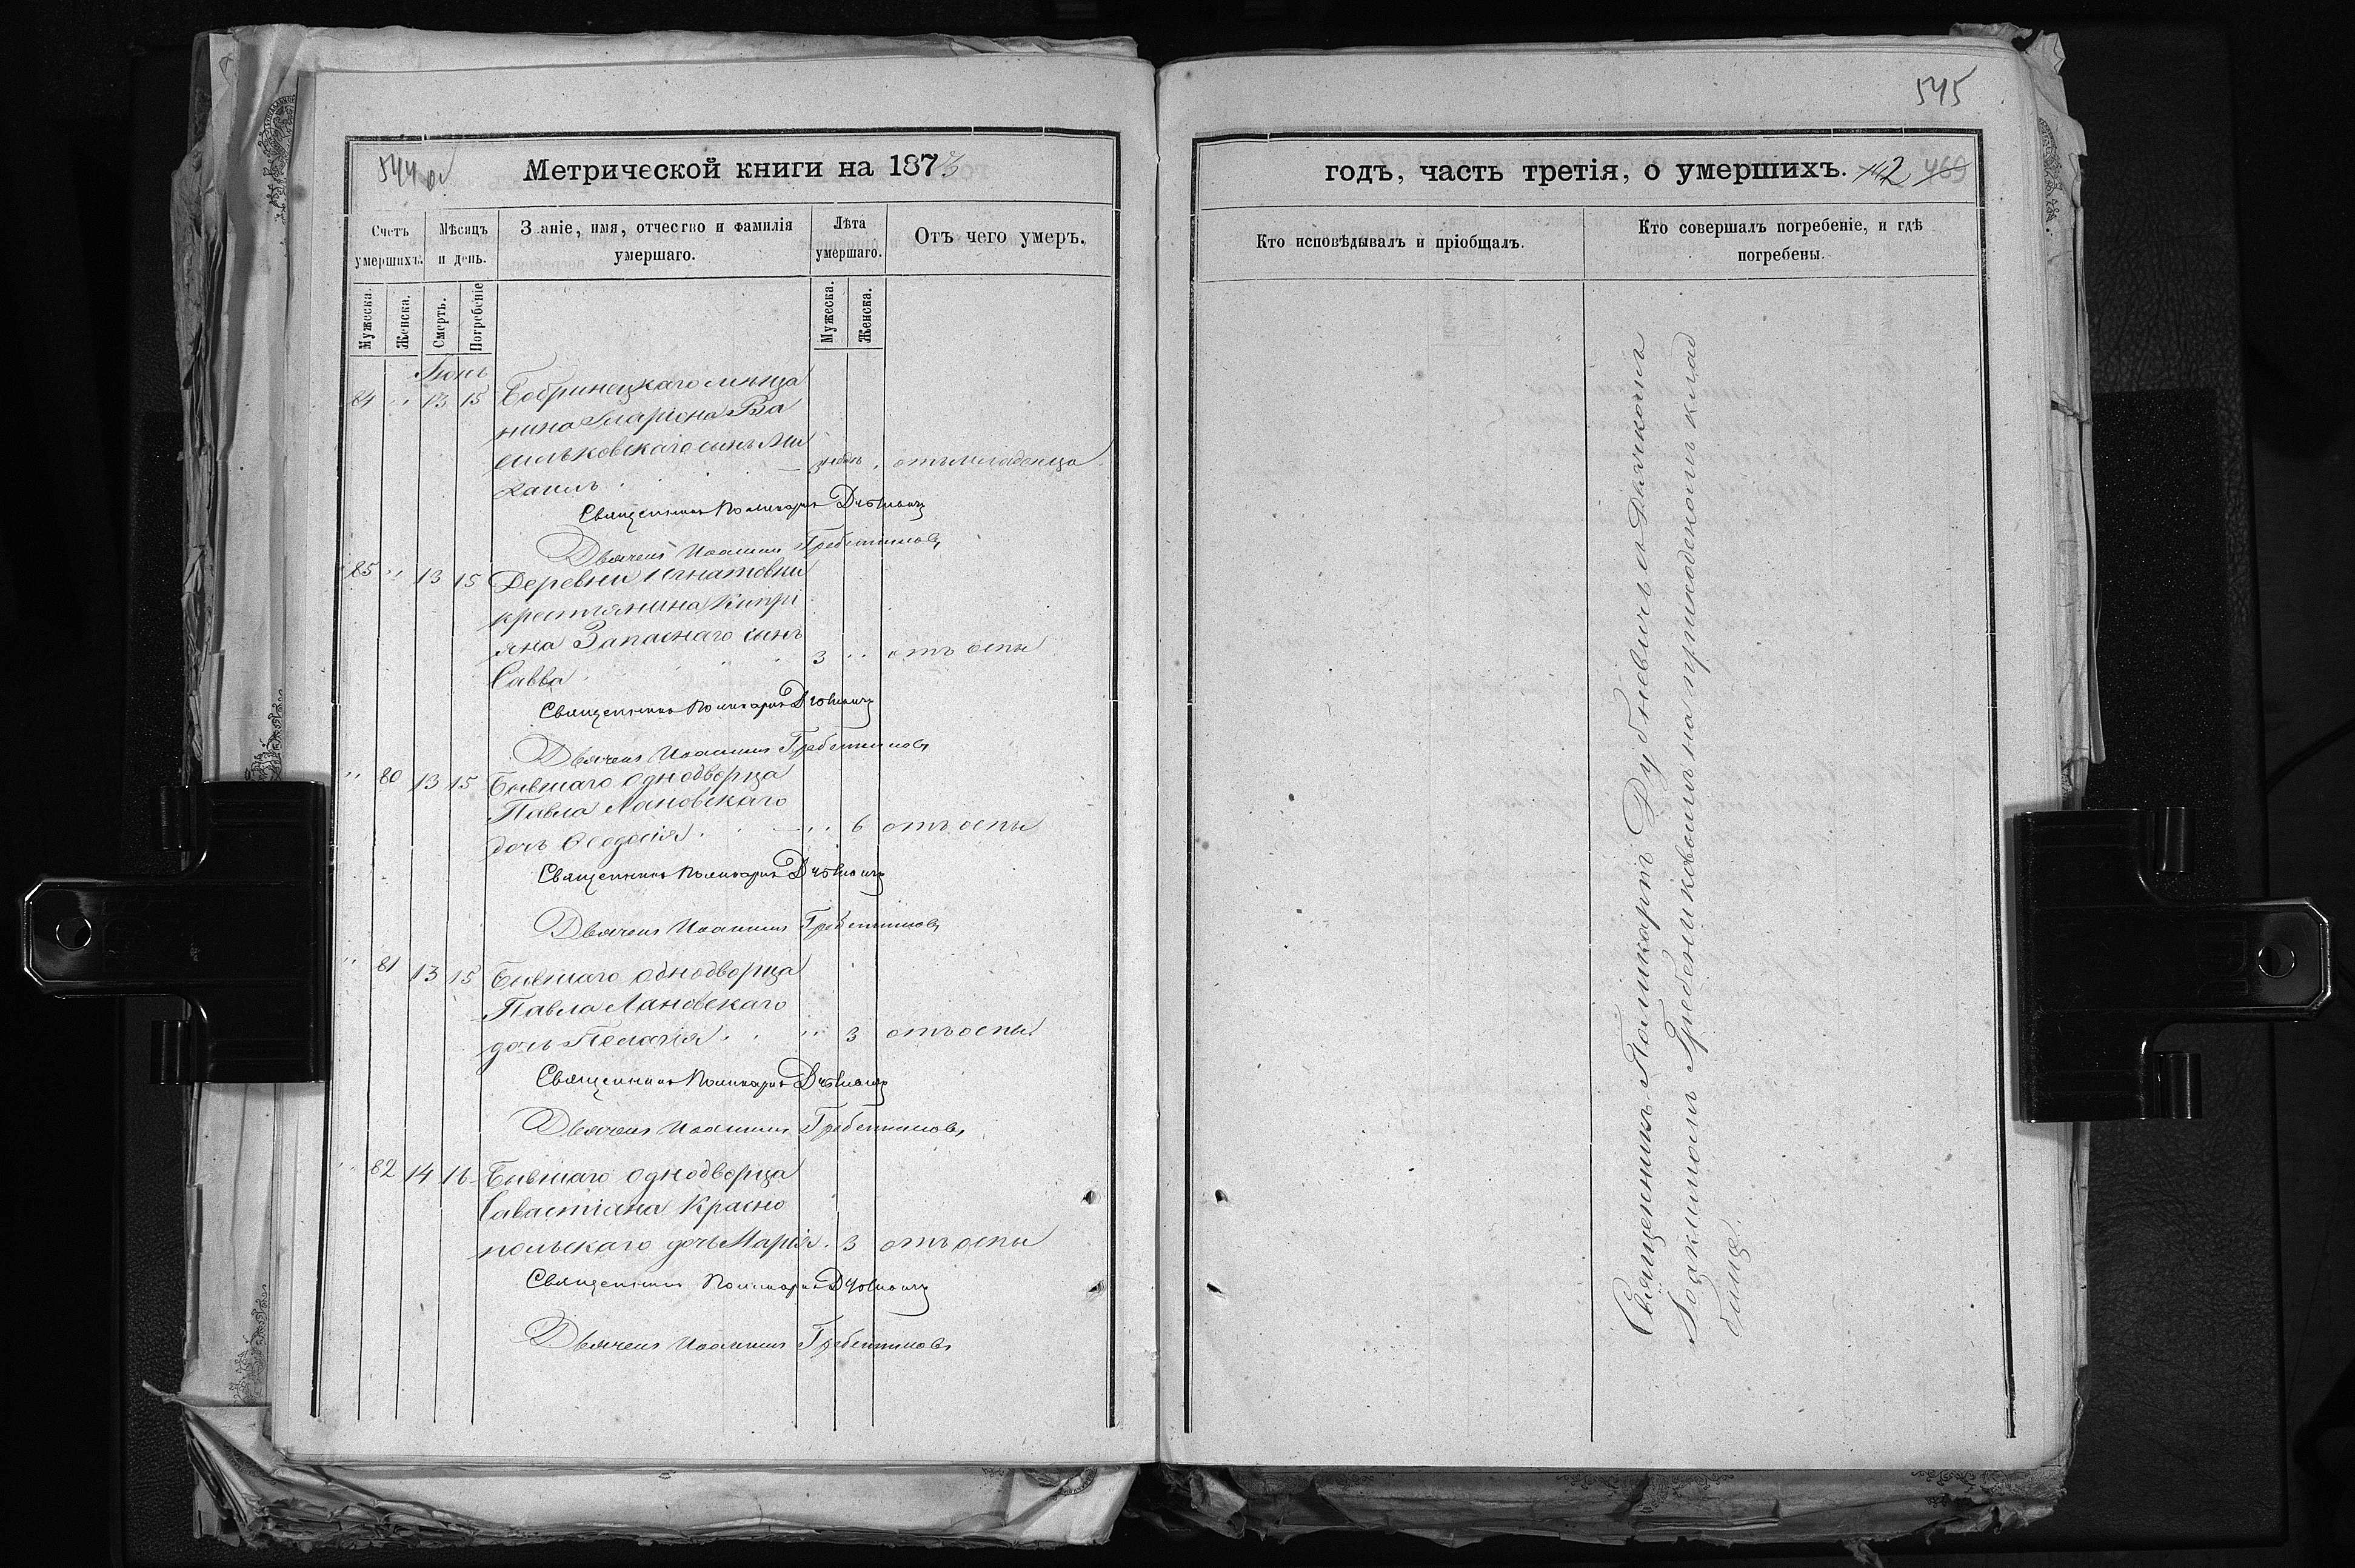 544 об
Метрической книги на 1873
Счетъ умершихъ.
Мѣсяцъ и день.
Званіе, имя, отчество и фамилія умершаго.
Лѣта умершаго.
Отъ чего умеръ.
Мужеска.
Женска.
Смерть.
Погребеніе
Мужеска.
Женска.
Іюнь
84 " 13 15 Бобринецкаго мѣща
нина Иларіона Ва
сильковскаго сынъ Ми
хаилъ . 3 недѣл. " отъ младенца
Священникъ Поликарпъ
Дьячекъ Іоакимъ Гребенниковъ
85 " 13 15 Деревни Игнатовки
крестьянина Кипрі
яна Запаснаго сынъ
Савва 3 " отъ оспы
Священникъ Поликарпъ
Дьячекъ Іоакимъ Гребенниковъ
" 80 13 15 Бывшаго однодворца
Павла Лановскаго
дочь Ѳеодосія . " 6 отъ оспы
Священникъ Поликарпъ
Дьячекъ Іоакимъ Гребенниковъ
" 81 13 15 Бывшаго однодворца
Павла Лановскаго
дочь Пелагія . . " 3 отъ оспы
Священникъ Поликарпъ
Дьячекъ Іоакимъ Гребенниковъ
" 82 14 16 Бывшаго однодворца
Савастіана Красно
польскаго дочь Марія . 3 отъ оспы
Священникъ Поликарпъ
Дьячекъ Іоакимъ Гребенниковъ
545
годъ, часть третія, о умершихъ. 142 469
Кто исповѣдывалъ и пріобщалъ.
Кто совершалъ погребеніе, и гдѣ погребены.
Священникъ Поликарпъ съ Дьячкомъ
Іоакимомъ Гребенниковымъ на приходскомъ клад
бищѣ.